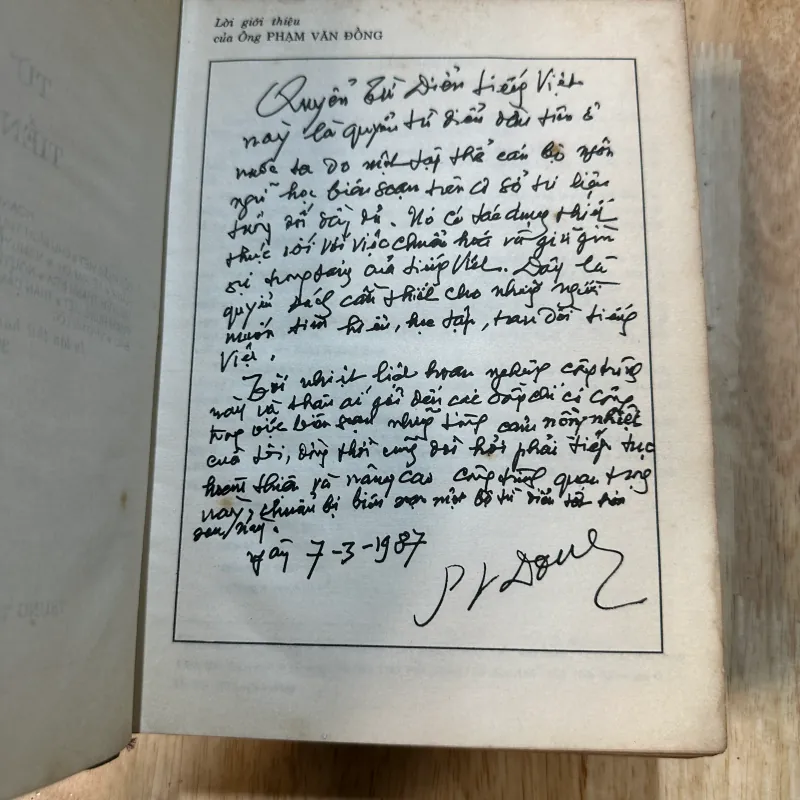 Lời giới thiệu
của Ông PHẠM VĂN ĐỒNG
Quyển Từ Điển tiếng Việt
này là quyển từ điển đầu tiên ở
nước ta do một tập thể cán bộ ngôn
ngữ học biên soạn trên cơ sở tư liệu
tương đối đầy đủ. Nó có tác dụng thiết
thực đối với việc chuẩn hoá và giữ gìn
sự trong sáng của tiếng Việt. Đây là
quyển sách cần thiết cho những người
muốn tìm hiểu, học tập, trau dồi tiếng
Việt.
Tôi nhiệt liệt hoan nghênh công trình
này và thân ái gửi đến các đồng chí có công
trong việc biên soạn những tình cảm nồng nhiệt
của tôi, đồng thời cũng đòi hỏi phải tiếp tục
hoàn thiện và nâng cao công trình quan trọng
này, chuẩn bị biên soạn một bộ từ điển tốt hơn
sau này.
ngày 7-3-1987